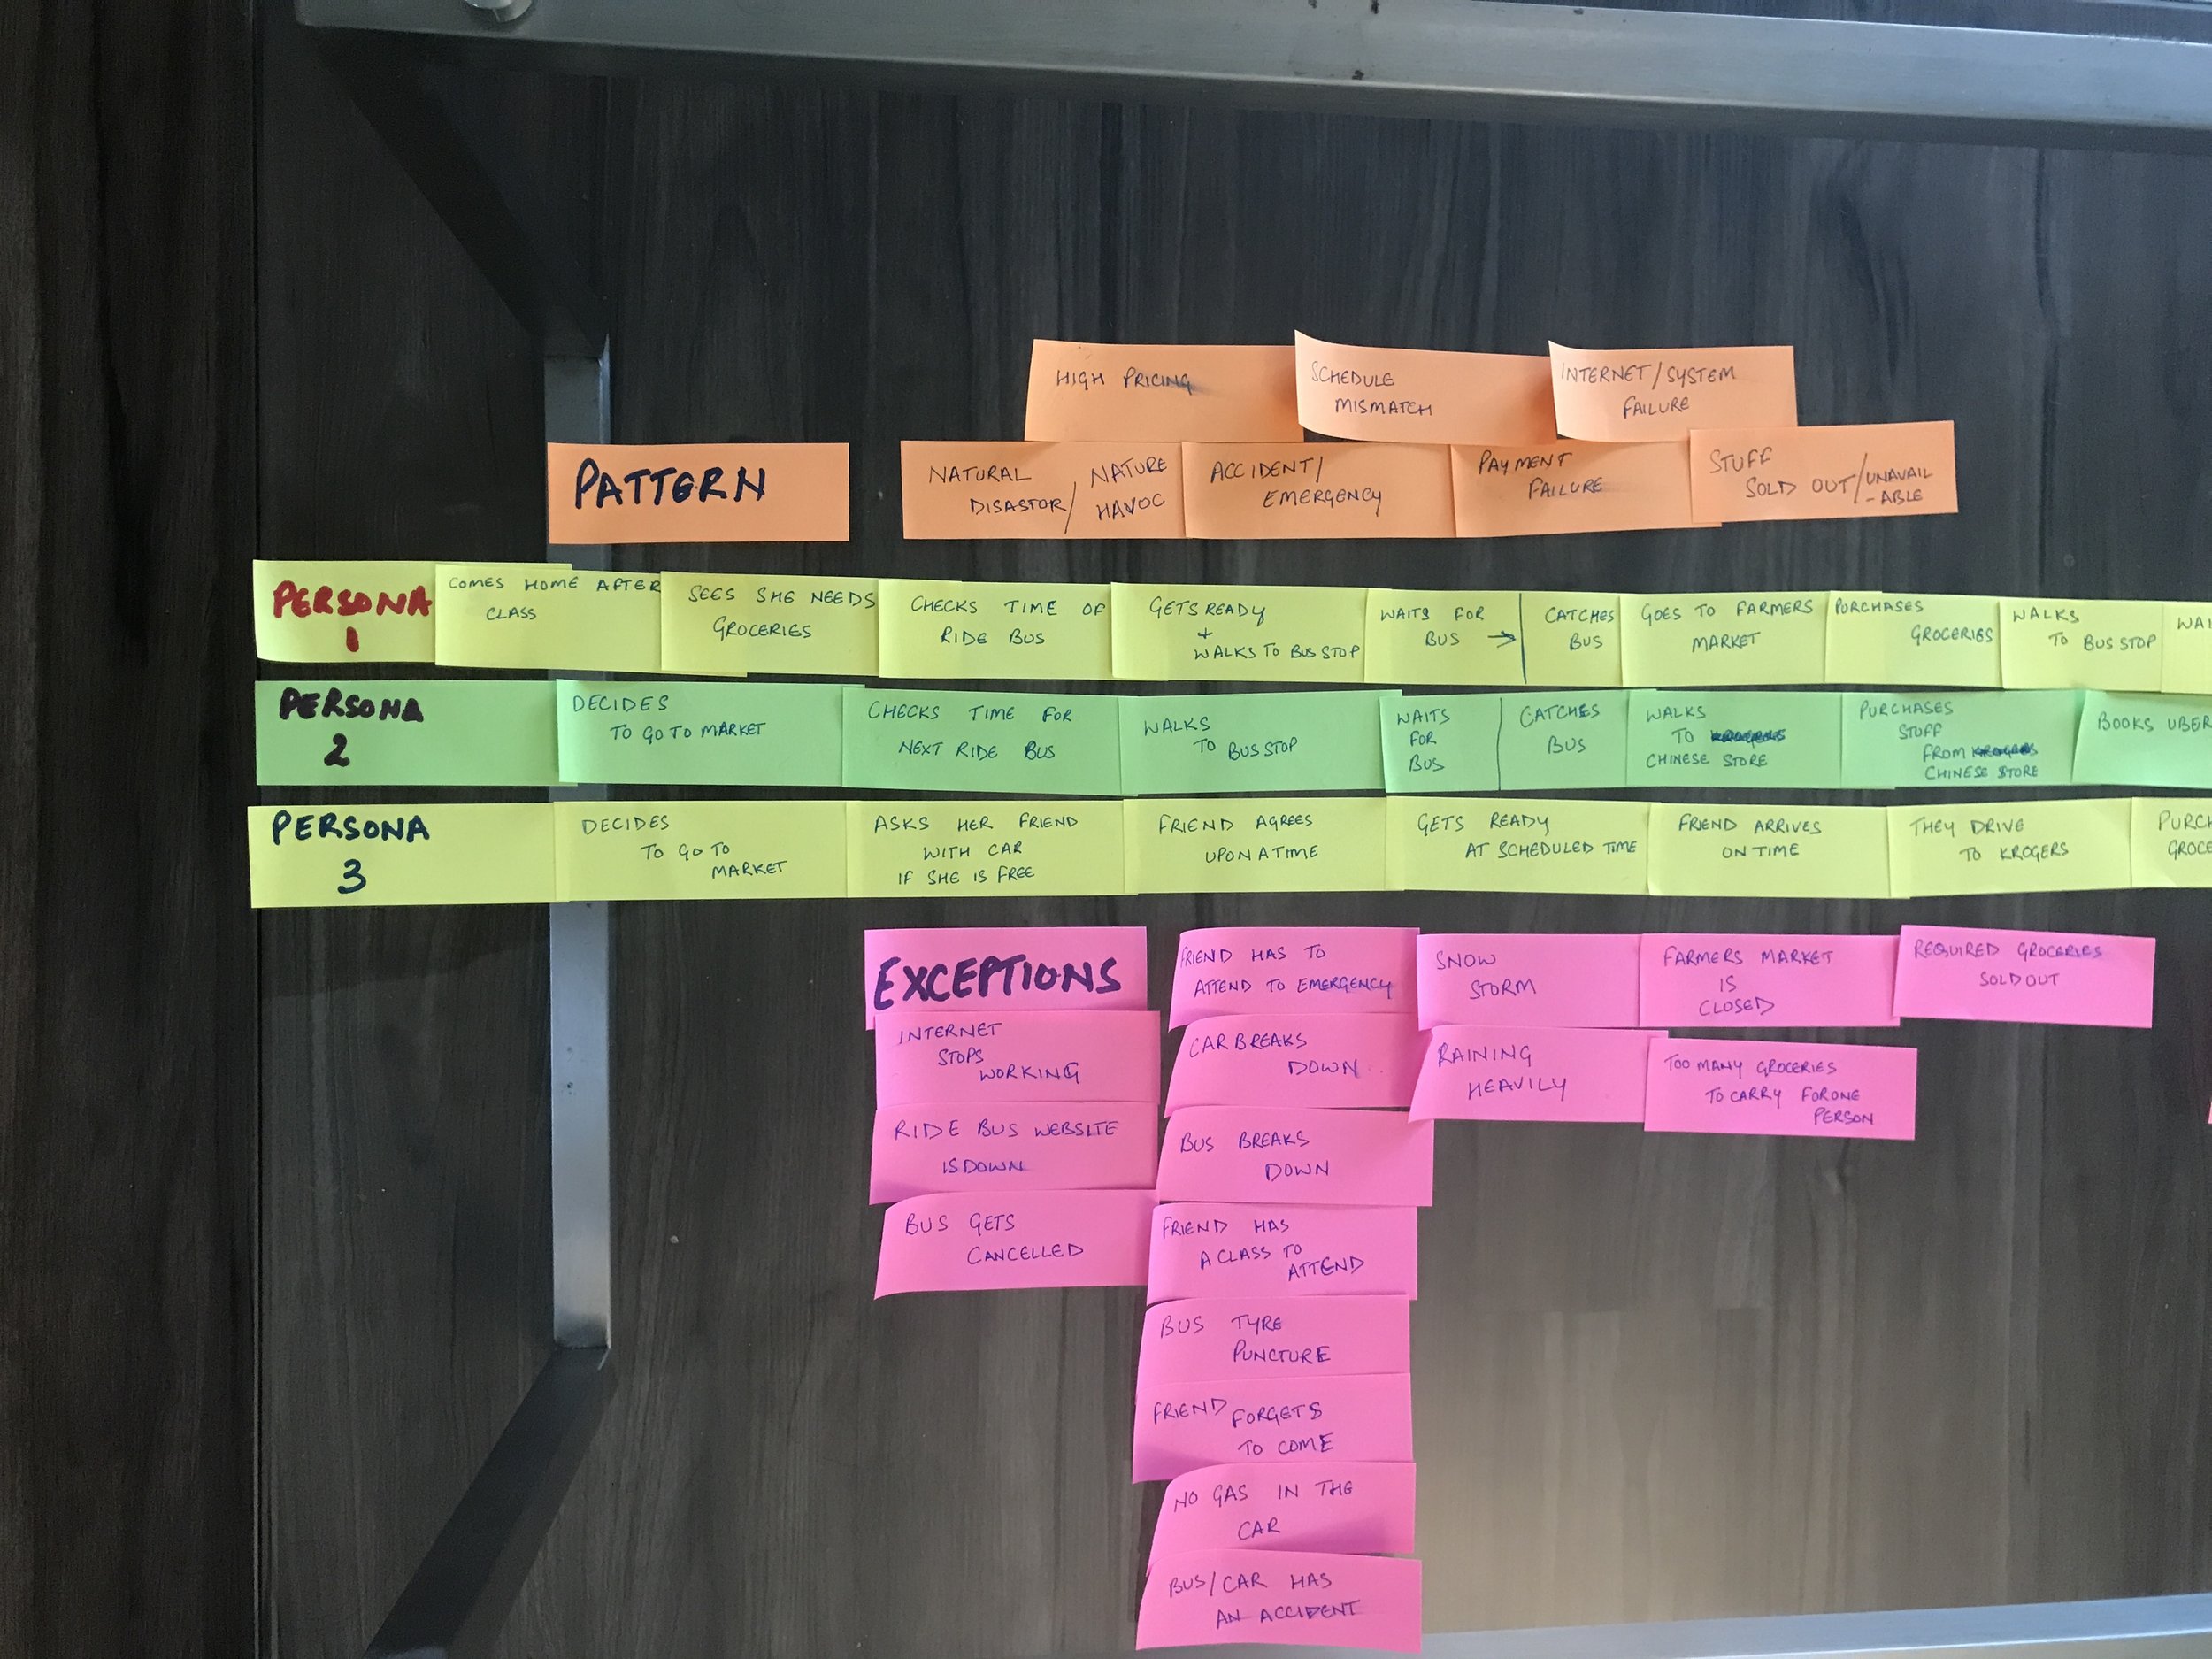 HIGH PRICING
SCHEDULE
MISMATCH
INTERNET/SYSTEM
FAILURE
PATTERN
NATURAL
DISASTOR/
NATURE
HAVOC
ACCIDENT/
EMERGENCY
PAYMENT
FAILURE
STUFF
SOLD OUT/UNAVAIL
-ABLE
PERSONA
1
COMES HOME AFTER
CLASS
SEES SHE NEEDS
GROCERIES
CHECKS TIME OF
RIDE BUS
GETS READY
+
WALKS TO BUS STOP
WAITS FOR
BUS →
CATCHES
BUS
GOES TO FARMERS
MARKET
PURCHASES
GROCERIES
WALKS
TO BUS STOP
WAI
PERSONA
2
DECIDES
TO GO TO MARKET
CHECKS TIME FOR
NEXT RIDE BUS
WALKS
TO BUS STOP
WAITS
FOR
BUS
CATCHES
BUS
WALKS
TO
CHINESE STORE
PURCHASES
STUFF
FROM
CHINESE STORE
BOOKS UBER
PERSONA
3
DECIDES
TO GO TO
MARKET
ASKS HER FRIEND
WITH CAR
IF SHE IS FREE
FRIEND AGREES
UPON A TIME
GETS READY
AT SCHEDULED TIME
FRIEND ARRIVES
ON TIME
THEY DRIVE
TO KROGERS
PURCH
GROCE
EXCEPTIONS
INTERNET
STOPS
WORKING
RIDE BUS WEBSITE
IS DOWN
BUS GETS
CANCELLED
FRIEND HAS TO
ATTEND TO EMERGENCY
CAR BREAKS
DOWN
BUS BREAKS
DOWN
FRIEND HAS
A CLASS TO
ATTEND
BUS TYRE
PUNCTURE
FRIEND FORGETS
TO COME
NO GAS IN THE
CAR
BUS/CAR HAS
AN ACCIDENT
SNOW
STORM
RAINING
HEAVILY
FARMERS MARKET
IS
CLOSED
TOO MANY GROCERIES
TO CARRY FOR ONE
PERSON
REQUIRED GROCERIES
SOLD OUT